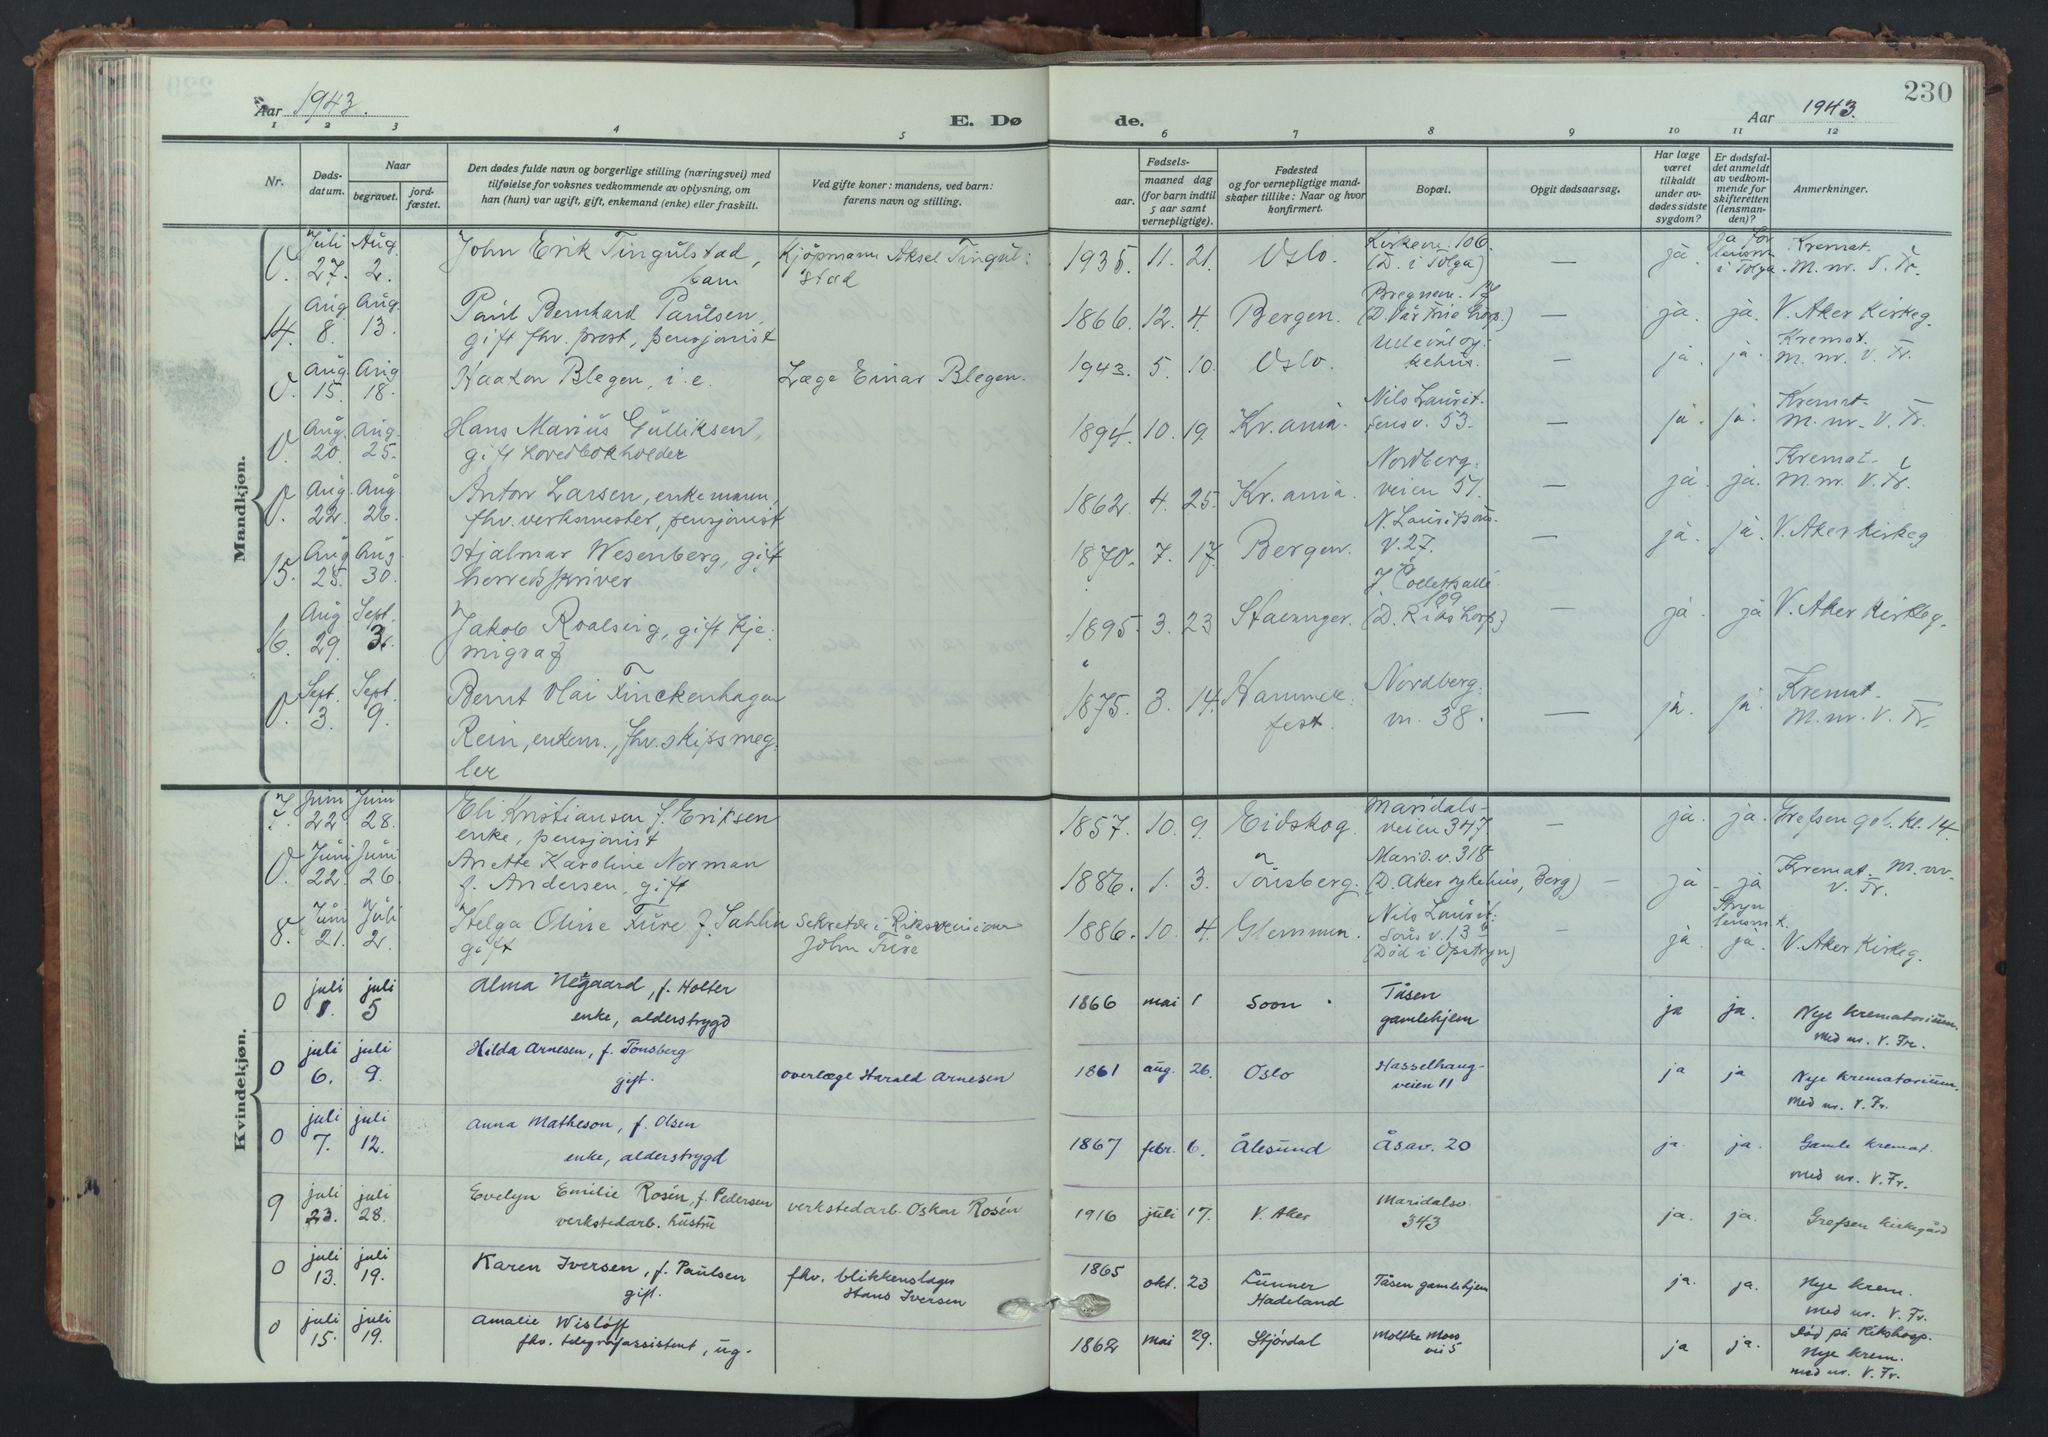 230
Aar 1943.
Aar 1943.
E. Dø
de.
1 2 3 4 5 6 7 8 9 10 11 12
Nr.
Døds-
datum.
Naar
begravet.
jord-
fæstet.
Den dødes fulde navn og borgerlige stilling (næringsvei) med
tilføielse for voksnes vedkommende av oplysning, om
han (hun) var ugift, gift, enkemand (enke) eller fraskilt.
Ved gifte koner: mandens, ved barn:
farens navn og stilling.
Fødsels-
aar. maaned dag
(for barn indtil
5 aar samt
vernepligtige).
Fødested
og for vernepligtige mand-
skaper tillike: Naar og hvor
konfirmert.
Bopæl.
Opgit dødsaarsag.
Har læge
været
tilkaldt
under av-
dødes sidste
sygdom?
Er dødsfal-
det anmeldt
av vedkom-
mende for
skifteretten
(lensman-
den)?
Anmerkninger.
Mandkjøn.
0. Juli 27. Aug. 2. John Erik Tingulstad, barn Kjøpmann Aksel Tingul-
stad 1935. 11. 21. Oslo. Kirkevn. 106.
(D. i Tolga) — ja. ja for
lensm.
i Tolga. Kremat.
M. nr. V. Fr.
14. Aug. 8. Aug. 13. Paul Bernhard Paulsen,
gift fhv. prest, pensjonist 1866. 12. 4. Bergen. Bregnevn. 17
(D. Vår Frue hosp.) — ja. ja. V. Aker Kirkeg.
0. Aug. 15. Aug. 18. Haakon Blegen, i. e. Læge Einar Blegen. 1943. 5. 10. Oslo. Ullevål sy-
kehus. — ja. ja. Kremat.
M. nr. V. Fr.
0. Aug. 20. Aug. 25. Hans Marius Gulliksen,
gift hovedbokholder 1894. 10. 19. Kr.ania. Nils Laurit-
sens v. 53. — ja. ja. Kremat.
M. nr. V. Fr.
0. Aug. 22. Aug. 26. Anton Larsen, enkemann,
fhv. verksmester, pensjonist 1862. 4. 25. Kr.ania. Nordberg-
veien 57. — ja. ja. Kremat.
M. nr. V. Fr.
15. Aug. 25. Aug. 30. Hjalmar Wesenberg, gift
herredsskriver 1870. 7. 17. Bergen. N. Lauritsøns
v. 27. — ja. ja. V. Aker Kirkeg
16. Aug. 29. Sept. 3. Jakob Roalsvig, gift kje-
migraf 1895. 3. 23 Stavanger. J. Colletsallé
109
(D. Rikshosp.) — ja. ja V. Aker Kirkeg.
0. Sept. 3. Sept. 9. Bernt Olai Finckenhagen
Rein, enkem., fhv. skipsmeg-
ler 1875. 3. 14. Hammer-
fest. Nordberg-
vn. 38. — ja. ja. Kremat.
M. nr. V. Fr.
Kvindekjøn.
7. Juni 22 Juni 28. Eli Kristiansen f. Eriksen
enke, pensjonist 1857. 10. 9. Eidskog. Maridals-
veien 347. — ja. ja. Grefsen gvl. kl. 14
0. Juni 22. Juni 26. Anette Karoline Norman
f. Andersen, gift 1886. 1. 3. Tønsberg. Marid. v. 318
(D. Aker sykehus, Berg) — ja - ja Kremat. M. nr.
V. Fr.
8. Juni 21. Juli 2. Helga Oline Fure f. Sahlin
gift Sekretær i Riksrevisionen
John Fure 1886. 10. 4. Glemmen. Nils Laurit-
søns v. 13 b
(Død i Opstryn) — ja. Stryn
lensm.k.
ja. V. Aker Kirkeg.
0 juli 1. juli 5 Alma Negaard, f. Holter
enke, alderstrygd 1866 mai 1 Soon Tåsen
gamlehjem ja ja. Nye krematorium.
Med nr. V. Fr.
0 juli 6. juli 9. Hilda Arnesen, f. Tönsberg
gift. overlæge Harald Arnesen 1861 aug. 26. Oslo Hasselhaug-
veien 11 ja ja Nye krematorium.
Med nr. V. Fr.
0 juli 7. juli 12. Anna Matheson, f. Olsen
enke, alderstrygd 1867 febr. 6. Ålesund Åsav. 20 ja. ja. Gamle kremat.
med nr. V. Fr.
9 juli 23. juli 28. Evelyn Emilie Rosén, f. Pedersen
verkstedarb. hustru verkstedarb. Oskar Rosén 1916 juli 17. V. Aker Maridalsv
343 ja. ja. Grefsen kirkegård
0 juli 13. juli 19. Karen Iversen, f. Paulsen
gift. fhv. blikkenslager
Hans Iversen 1865 okt. 23 Lunner
Hadeland Tåsen gamlehjem ja. ja. Nye krem.
med nr. V. Fr.
0 juli 15. juli 19. Amalie Wisløff
fhv. telegrafassistent, ug. 1862 mai 29. Stjørdal Moltke Moes
vei 5 ja ja. Død på Rikshosp.
Nye krem.
med nr. V. Fr.